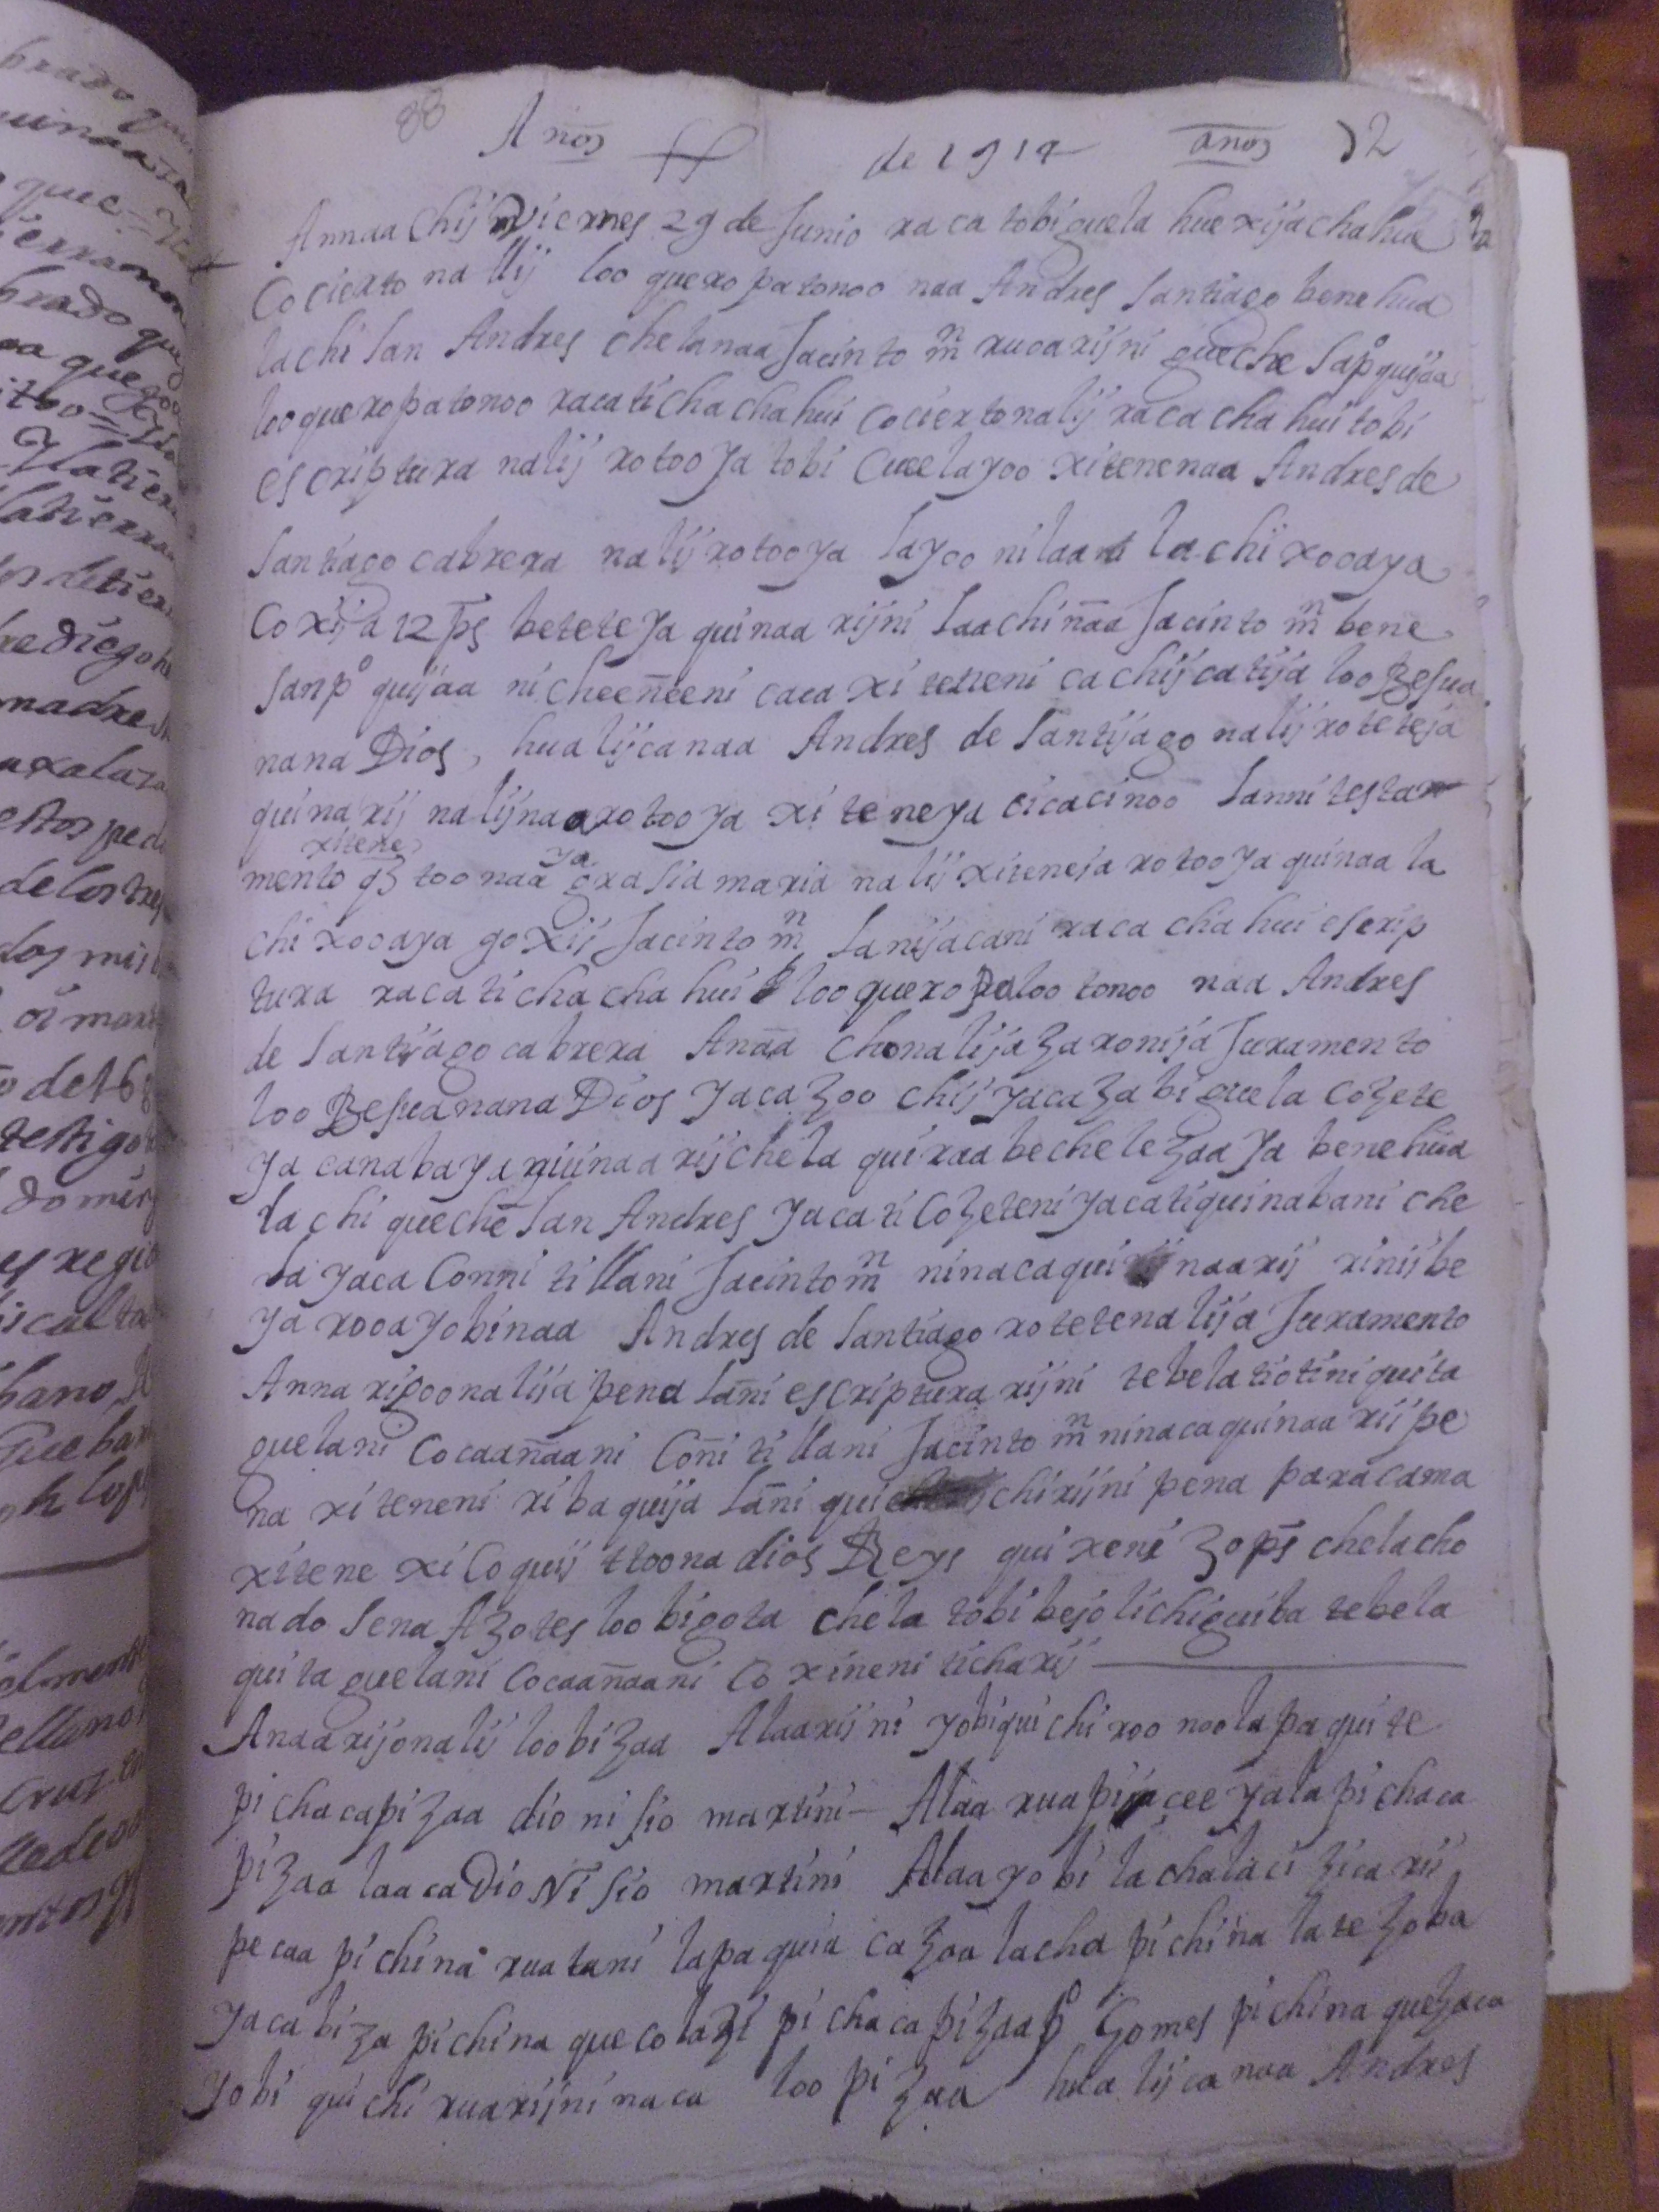 88 Años de 1914 años 32
Annaa Chij Viernes 29 de Junio raca tobi quela huexija chahue
Cocierto nalij loo quexopatonoo naa Andres Santiago bene hua
lachi San Andres chelanaa Jacinto m̃n rucarijni queche Sapo quijaa
loo quexopatonoo racaticha chahui cociertonalij raca chahui tobi
escriptura nalij rotoo ya tobi Cuelayoo xitenenaa Andres de
Santiago cabrera nalij rotooya layoo nilaani lachi xooaya
Coxija 12 ps beteteya quinaa rijni Laachiñaa Jacinto m̃n bene
Sanpo quijaa nicheeñeeni caca xiteneni cachijcatija loo Besua
nana Dios, hualijcanaa Andres de Santijago nalij roteteja
quinarij nalijnaa rotooya xi teneya cicacinoo Lanni testa
xitene ya
mento q3 toonaa grasia maria nalij xiteneja rotooya quinaa la
chi xooaya goxij Jacinto m̃n Lanijacani raca chahui escrip
tura racaticha chahui loo quexopaloo tonoo naa Andres
de Santijago cabrera Anãa chonalija zaronija Juramento
loo Besuanana Dios yaca zoo chij yaca zabi quela cozete
ya canabaya quinaa rij chela quiraa beche lezaa ya bene hua
lachi queche San Andres yacati Cozeteni yacatiquinabani che
la yaca Conni tillani Jacinto m̃n ninacaqui naarij rinij be
ya rooa yobinaa Andres de Santiago rotetenalija Juramento
Anna rigoonalija pena Lañi escriptura rijni tebela tiotini quita
quelani Cocaañaani Coñi tillani Jacinto m̃n ninacaquinaa rij pe
na xiteneni ribaquija Lañi chirijni pena paracama
xitene xi Coquij ttoona dios Reys quixeni 30 ps chelacho
nado Sena Azotes loo bigota chela tobi bejo lichiguiba tebela
quita quelani Cocaañaani Co xineni ticharij
Anaarijonalij loo bizaa Alaarijni yobiquichi roo noo lapaquite
pichacapizaa dionisio martini Alaa ruapijacee yala pichaca
pizaa laaca Dionisio martini Alaa yobi lachalaci zicarij
pecaa pichina ruatani lapaquia cazaa lacha pichina latezoba
yacabiza pichina quecolazi pichacapizaa po Gomes pichina quezaca
yobi quichi ruarijni naca loo pizaa hualijcanaa Andres